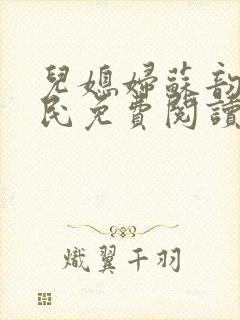 兒媳婦蘇韵
民免費閱讀
熾翼千羽